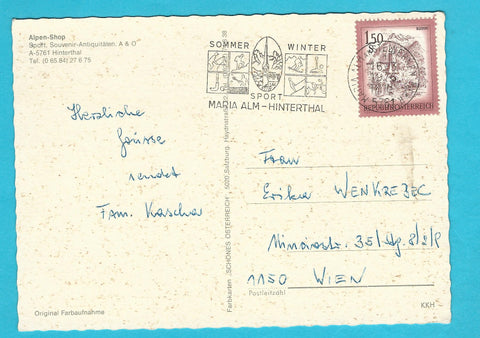 Alpen-Shop
Sport, Souvenir-Antiquitäten, A & O
A-5761 Hinterthal
Tel. (0 65 84) 27 6 75
SOMMER WINTER
SPORT
MARIA ALM-HINTERTHAL
1.50
REPUBLIK ÖSTERREICH
Herzliche
Grüsse
sendet
Fam.
Farbkarten „SCHÖNES ÖSTERREICH" 5020 Salzburg, Haydnstraße
Frau
Erika WENKREBEC
35/
1150 WIEN
Postleitzahl
Original Farbaufnahme
KKH